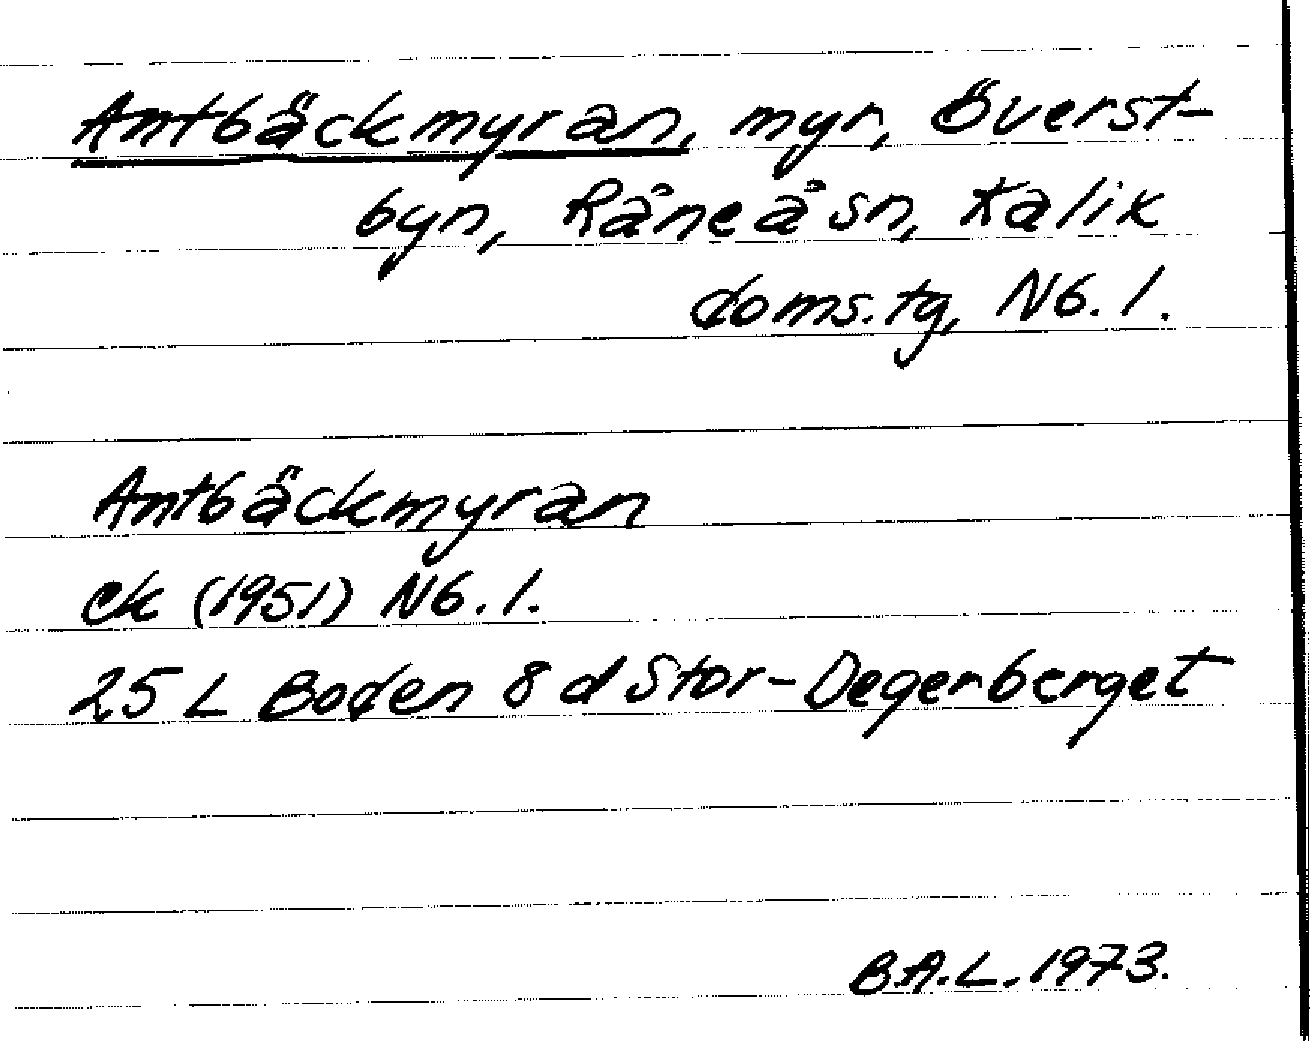 Antbäckmyran, myr, Överst-
byn, Råneå sn, Kalix
doms.tg, Nb. l.
Antbäckmyran
ek (1951) Nb. l.
25 L Boden 8 d Stor-Degerberget
B.A.L. 1973.